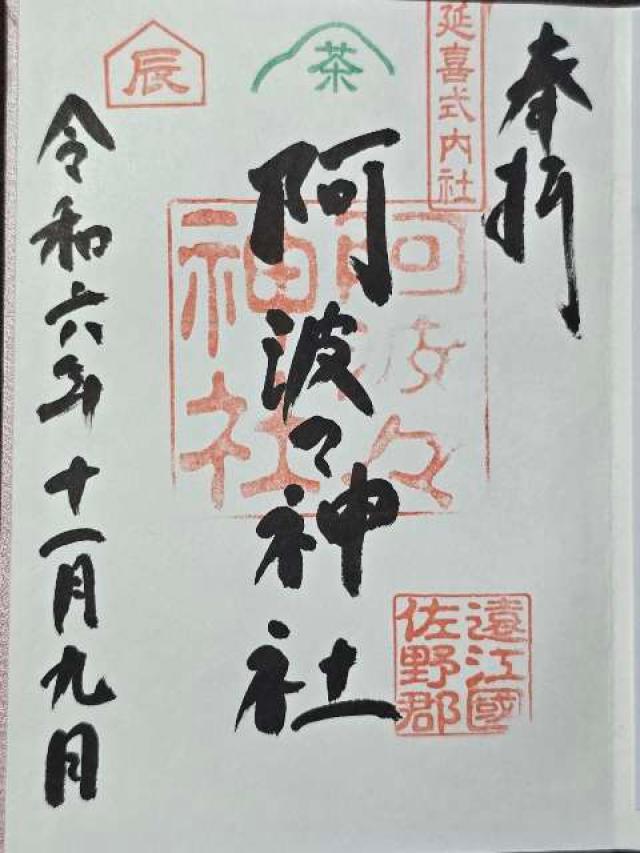 奉拝
延喜式内社
茶
辰
阿波々神社
阿波々
神社
遠江國
佐野郡
令和六年十一月九日